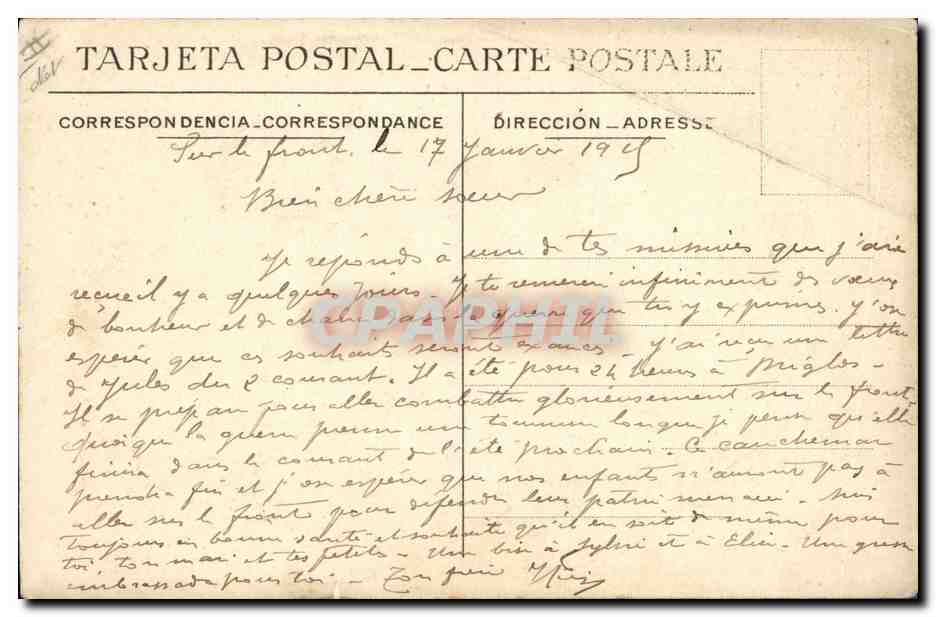 TARJETA POSTAL_CARTE POSTALE
CORRESPONDENCIA_CORRESPONDANCE
DIRECCIÓN_ADRESSE
Sur le front, le 17 Janvier 1915
Bien chère sœur
Je réponds à une de tes missives que j'ai
recueil y a quelques jours. Je te remercie infiniment des vœux
de bonheur et de dans la guerre que tu y exprimes. J'ose
espérer que ces souhaits seront exaucés. J'ai reçu une lettre
de Jules du 2 courant. Il a été pour 24 heures à
Il se prépare pour aller combattre glorieusement sur le front.
Quoique la guerre prenne une longue je pense qu'elle
finira dans le courant de l'été prochain. Ce cauchemar
prendra fin et j'ose espérer que nos enfants n'auront pas à
aller sur le front pour défendre leur patrie menacée. Suis
toujours en bonne santé et souhaite qu'il en soit de même pour
toi ton mari et tes petits. Un bisè à Sylvie et à Elie. Une grosse
embrassade pour toi. Ton frère
CPAPHIL